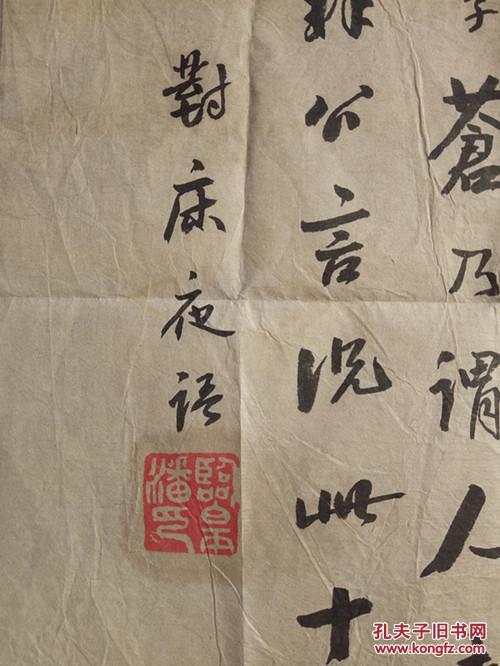 子蒼乃謂人
公言況此十
對床夜語
潘印
孔夫子旧书网
www.kongfz.com